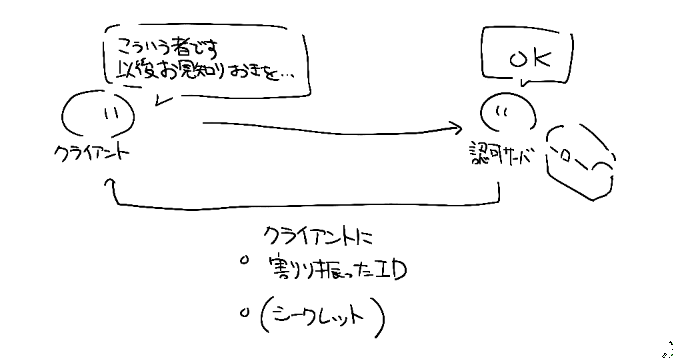 こういう者です
以後お見知りおきを...
OK
クライアント
認可サーバ
クライアントに
割り振ったID
(シークレット)